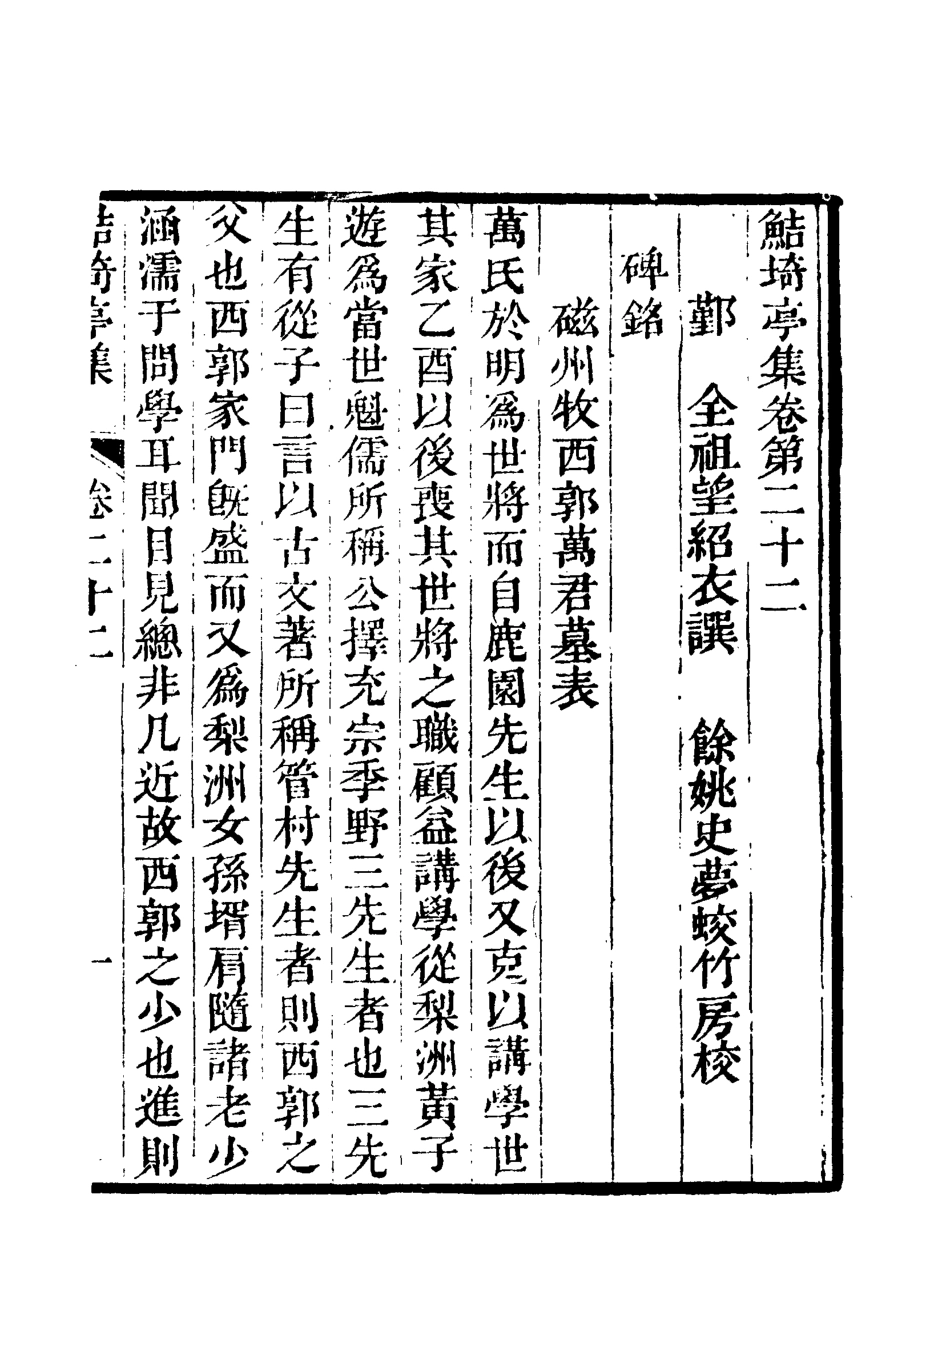 鮚埼亭集卷第二十二
鄞　全祖望紹衣譔　餘姚史夢蛟竹房校
碑銘
磁州牧西郭萬君墓表
萬氏於明爲世將而自鹿園先生以後又克以講學世
其家乙酉以後喪其世將之職顧益講學從梨洲黃子
遊爲當世魁儒所稱公擇充宗季野三先生者也三先
生有從子曰言以古文著所稱管村先生者則西郭之
父也西郭家門旣盛而又爲梨洲女孫壻肩隨諸老少
涵濡于問學耳聞目見總非凡近故西郭之少也進則
鮚埼亭集　卷二十二　一